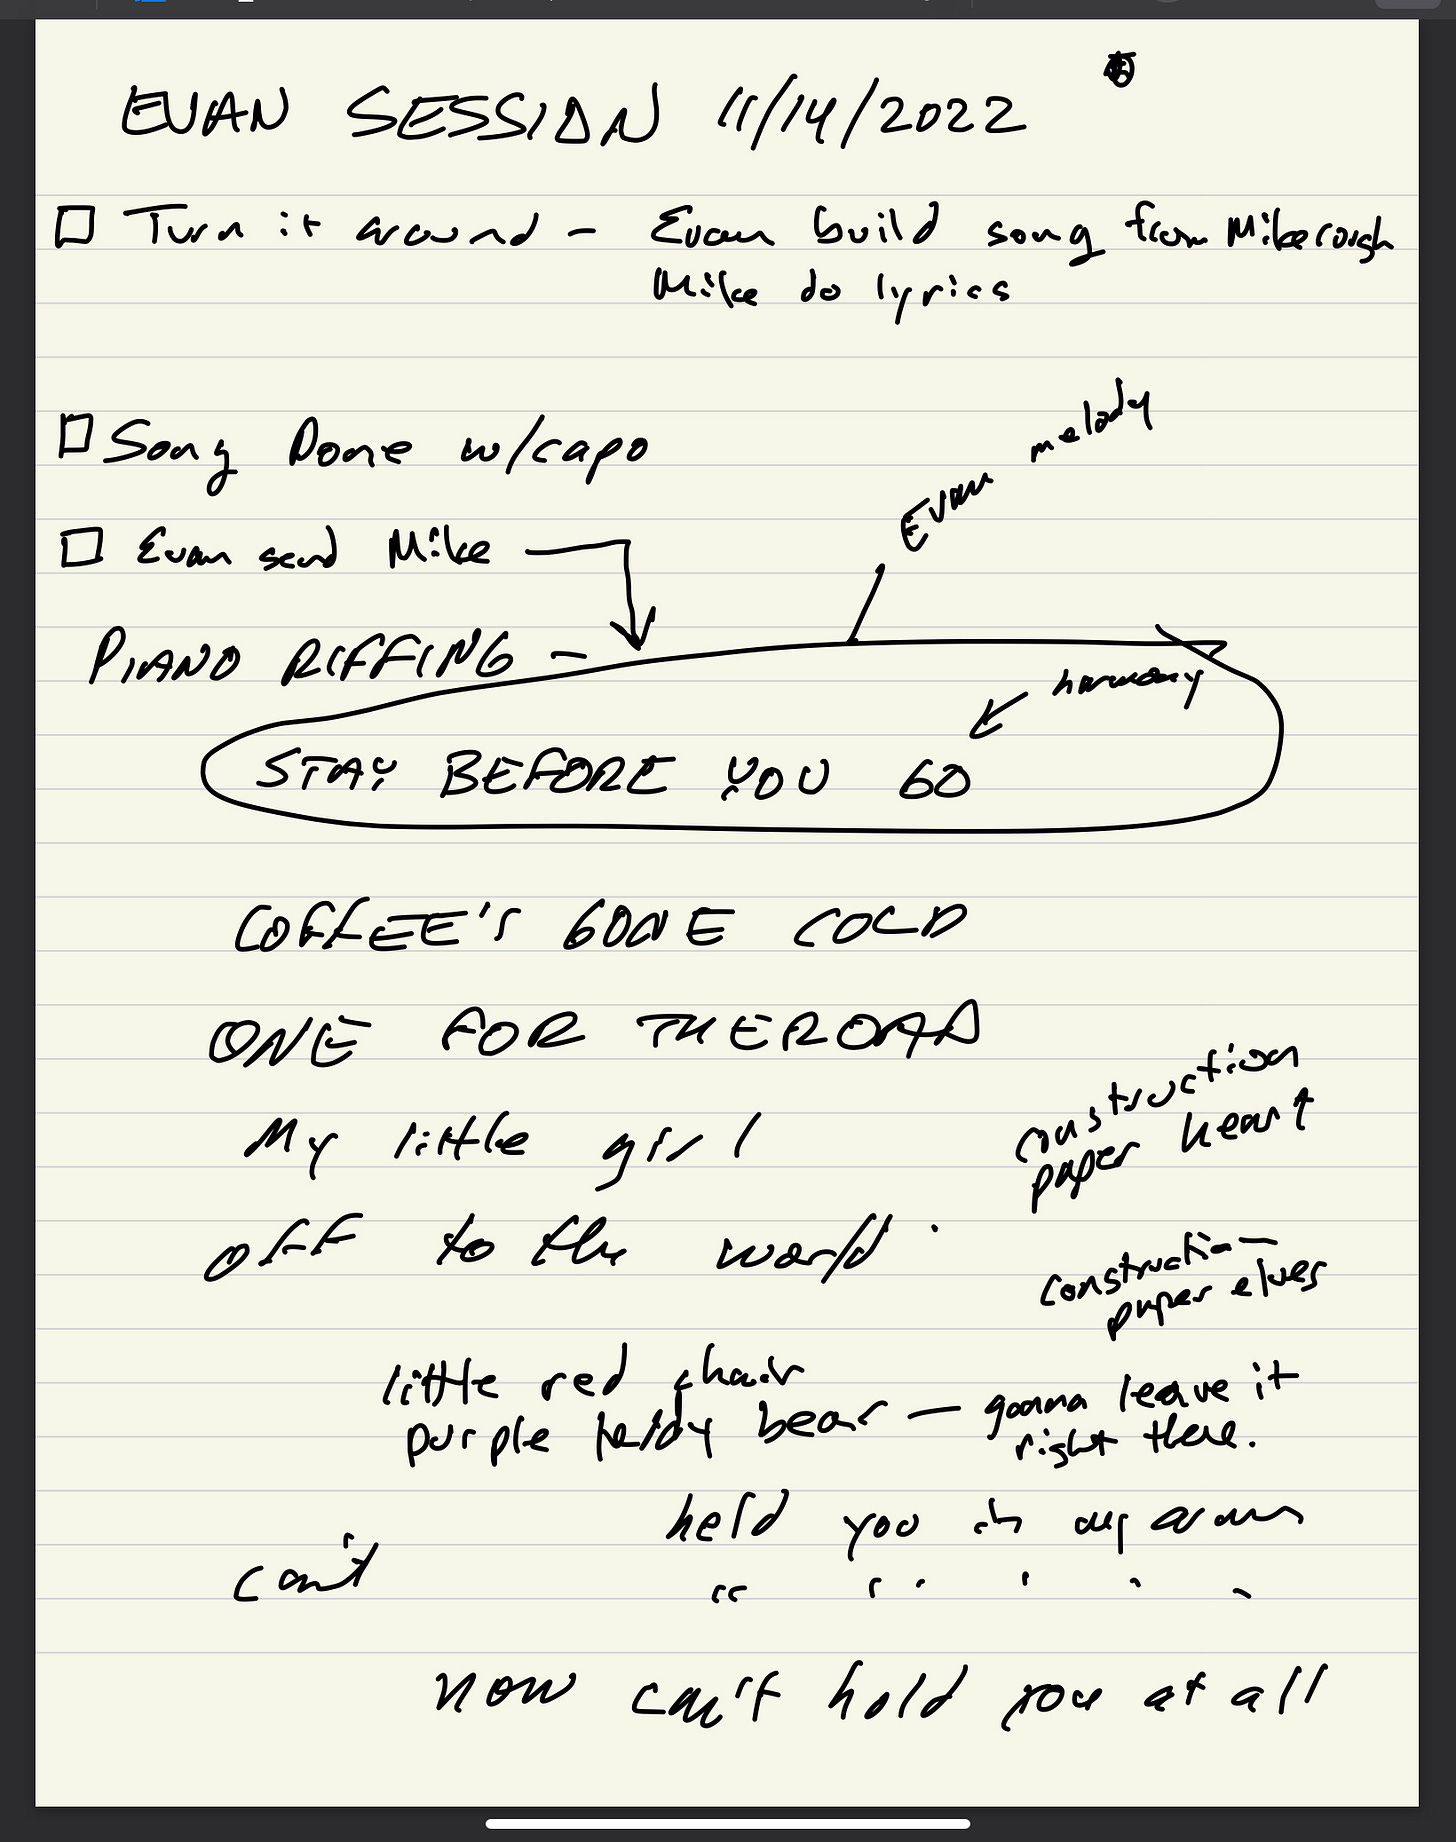 EVAN SESSION 11/14/2022
Turn it around - Evan build song from Mike rough
Mike do lyrics
Song Done w/capo
Evan melody
Evan send Mike
PIANO RIFFING -
harmony
STAY BEFORE YOU GO
COFFEE'S GONE COLD
ONE FOR THE ROAD
My little girl
off to the world
construction
paper heart
construction
paper elves
little red chair
purple teddy bear — gonna leave it
right there.
held you in my arms
can't
" " ' ' ' '
now can't hold you at all